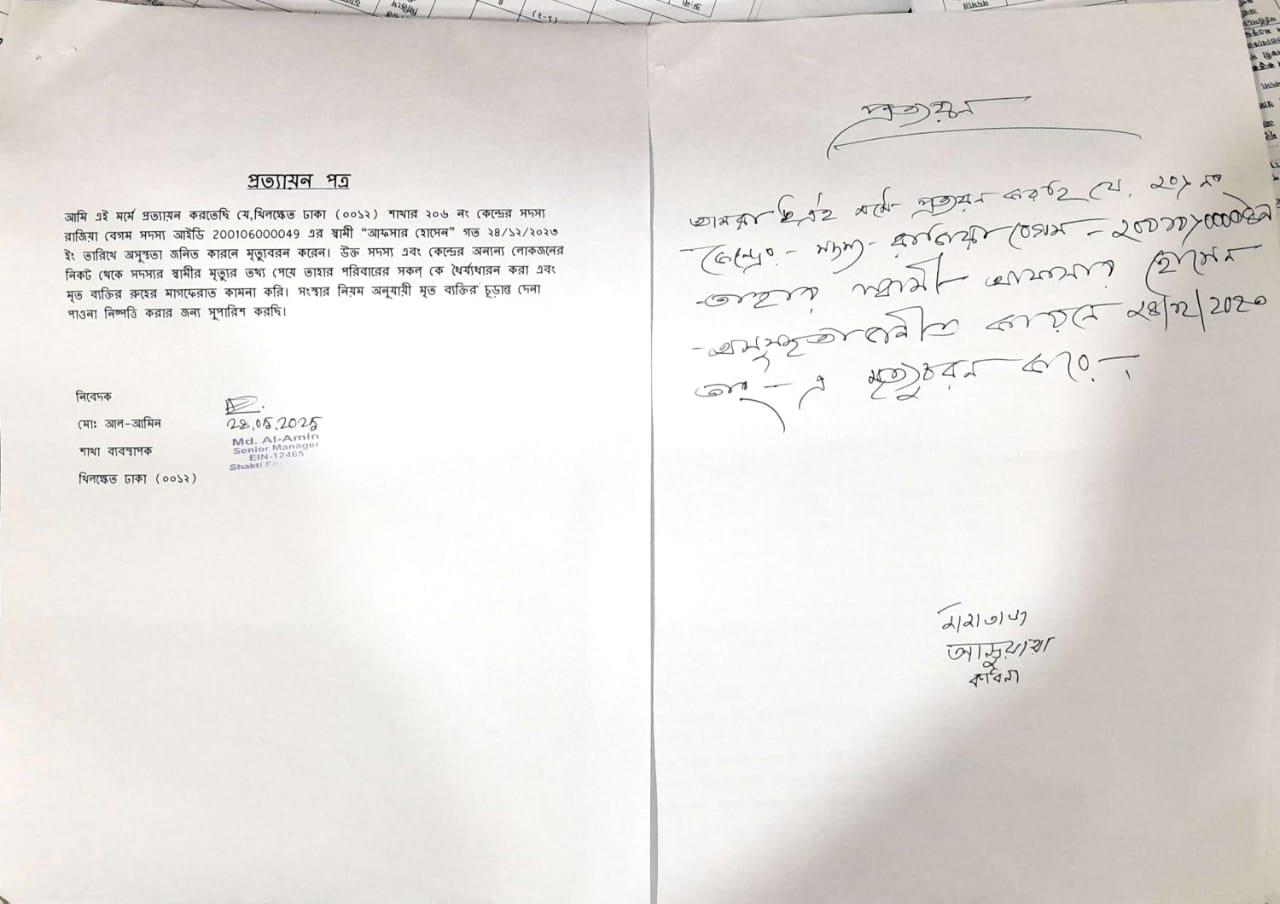 প্রত্যায়ন পত্র
আমি এই মর্মে প্রত্যায়ন করতেছি যে,খিলক্ষেত ঢাকা (০০১২) শাখার ২০৬ নং কেন্দ্রের সদস্য
রাজিয়া বেগম সদস্য আইডি 200106000049 এর স্বামী "আফসার হোসেন" গত ২৪/১২/২০২৩
ইং তারিখে অসুস্থতা জনিত কারনে মৃত্যুবরন করেন। উক্ত সদস্য এবং কেন্দ্রের অনান্য লোকজনের
নিকট থেকে সদস্যর স্বামীর মৃত্যুর তথ্য পেয়ে তাহার পরিবারের সকল কে ধৈর্য্যধারন করা এবং
মৃত ব্যক্তির রুহের মাগফেরাত কামনা করি। সংস্থার নিয়ম অনুযায়ী মৃত ব্যক্তির চূড়ান্ত দেনা
পাওনা নিষ্পত্তি করার জন্য সুপারিশ করছি।
নিবেদক
মো: আল-আমিন
28.05.2025
Md. Al-Amin
Senior Manager
EIN-12465
Shakti
শাখা ব্যবস্থাপক
খিলক্ষেত ঢাকা (০০১২)
প্রত্যয়ন
আমরা এই মর্মে প্রত্যয়ন করছি যে,
কেন্দ্রের সদস্য রাজিয়া বেগম
তাহার স্বামী হোসেন
কারনে
তাং - এ মৃত্যুবরন করে।
মমতাজ